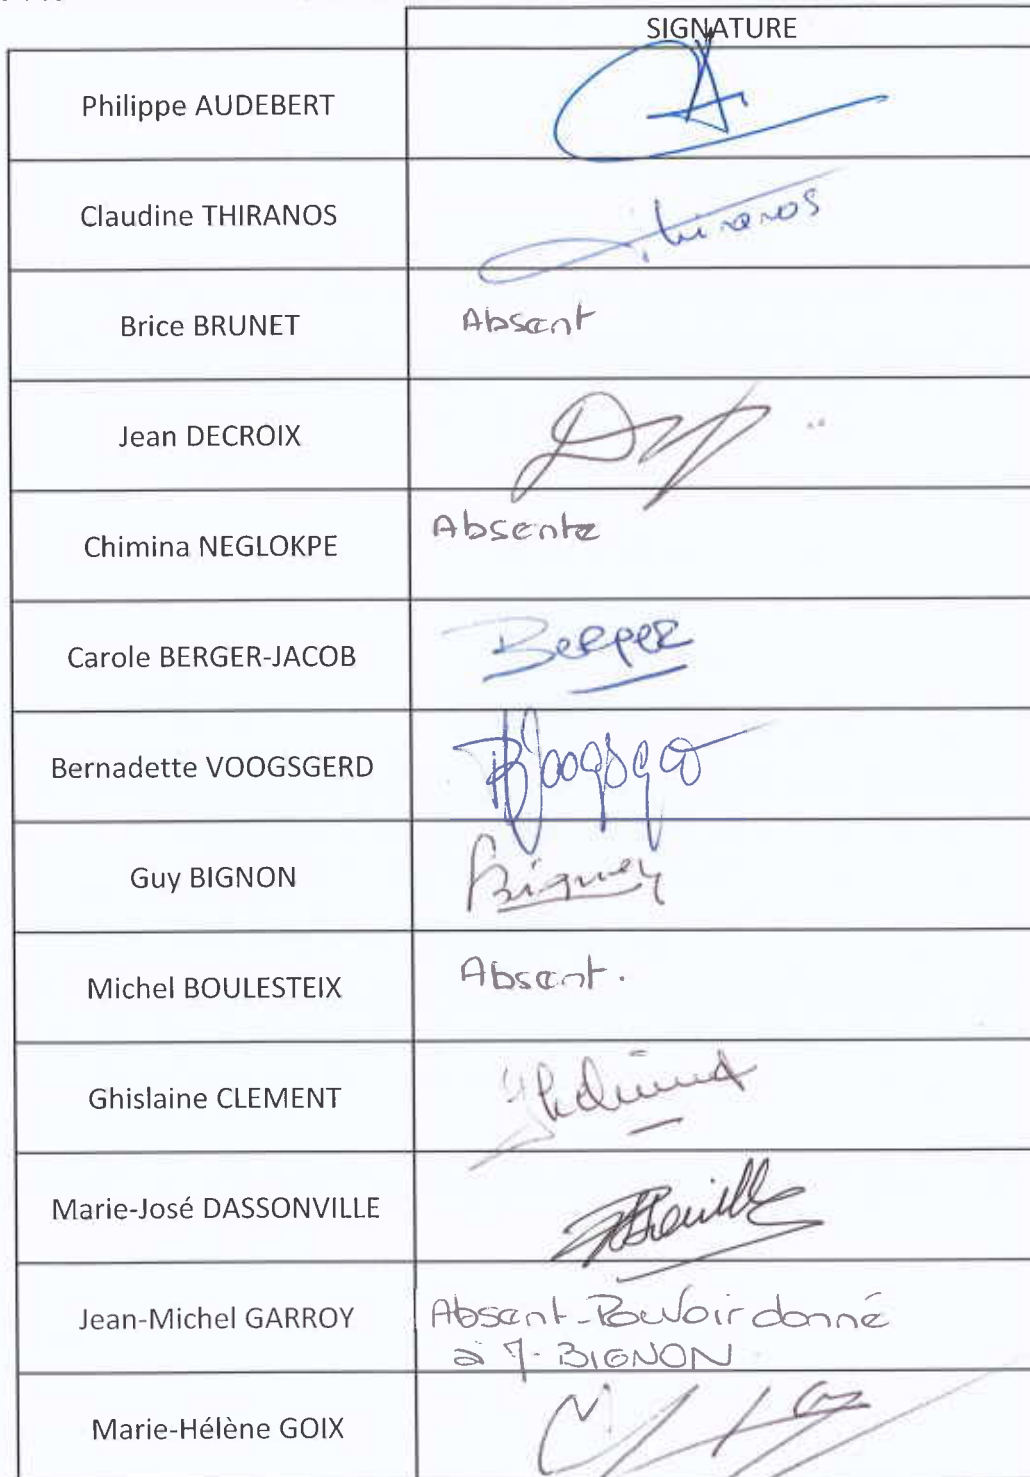 SIGNATURE
Philippe AUDEBERT
Claudine THIRANOS Thiranos
Brice BRUNET Absent
Jean DECROIX
Chimina NEGLOKPE Absente
Carole BERGER-JACOB Berger
Bernadette VOOGSGERD
Guy BIGNON Bignon
Michel BOULESTEIX Absent.
Ghislaine CLEMENT
Marie-José DASSONVILLE
Jean-Michel GARROY Absent-Pouvoir donné
à M. BIGNON
Marie-Hélène GOIX